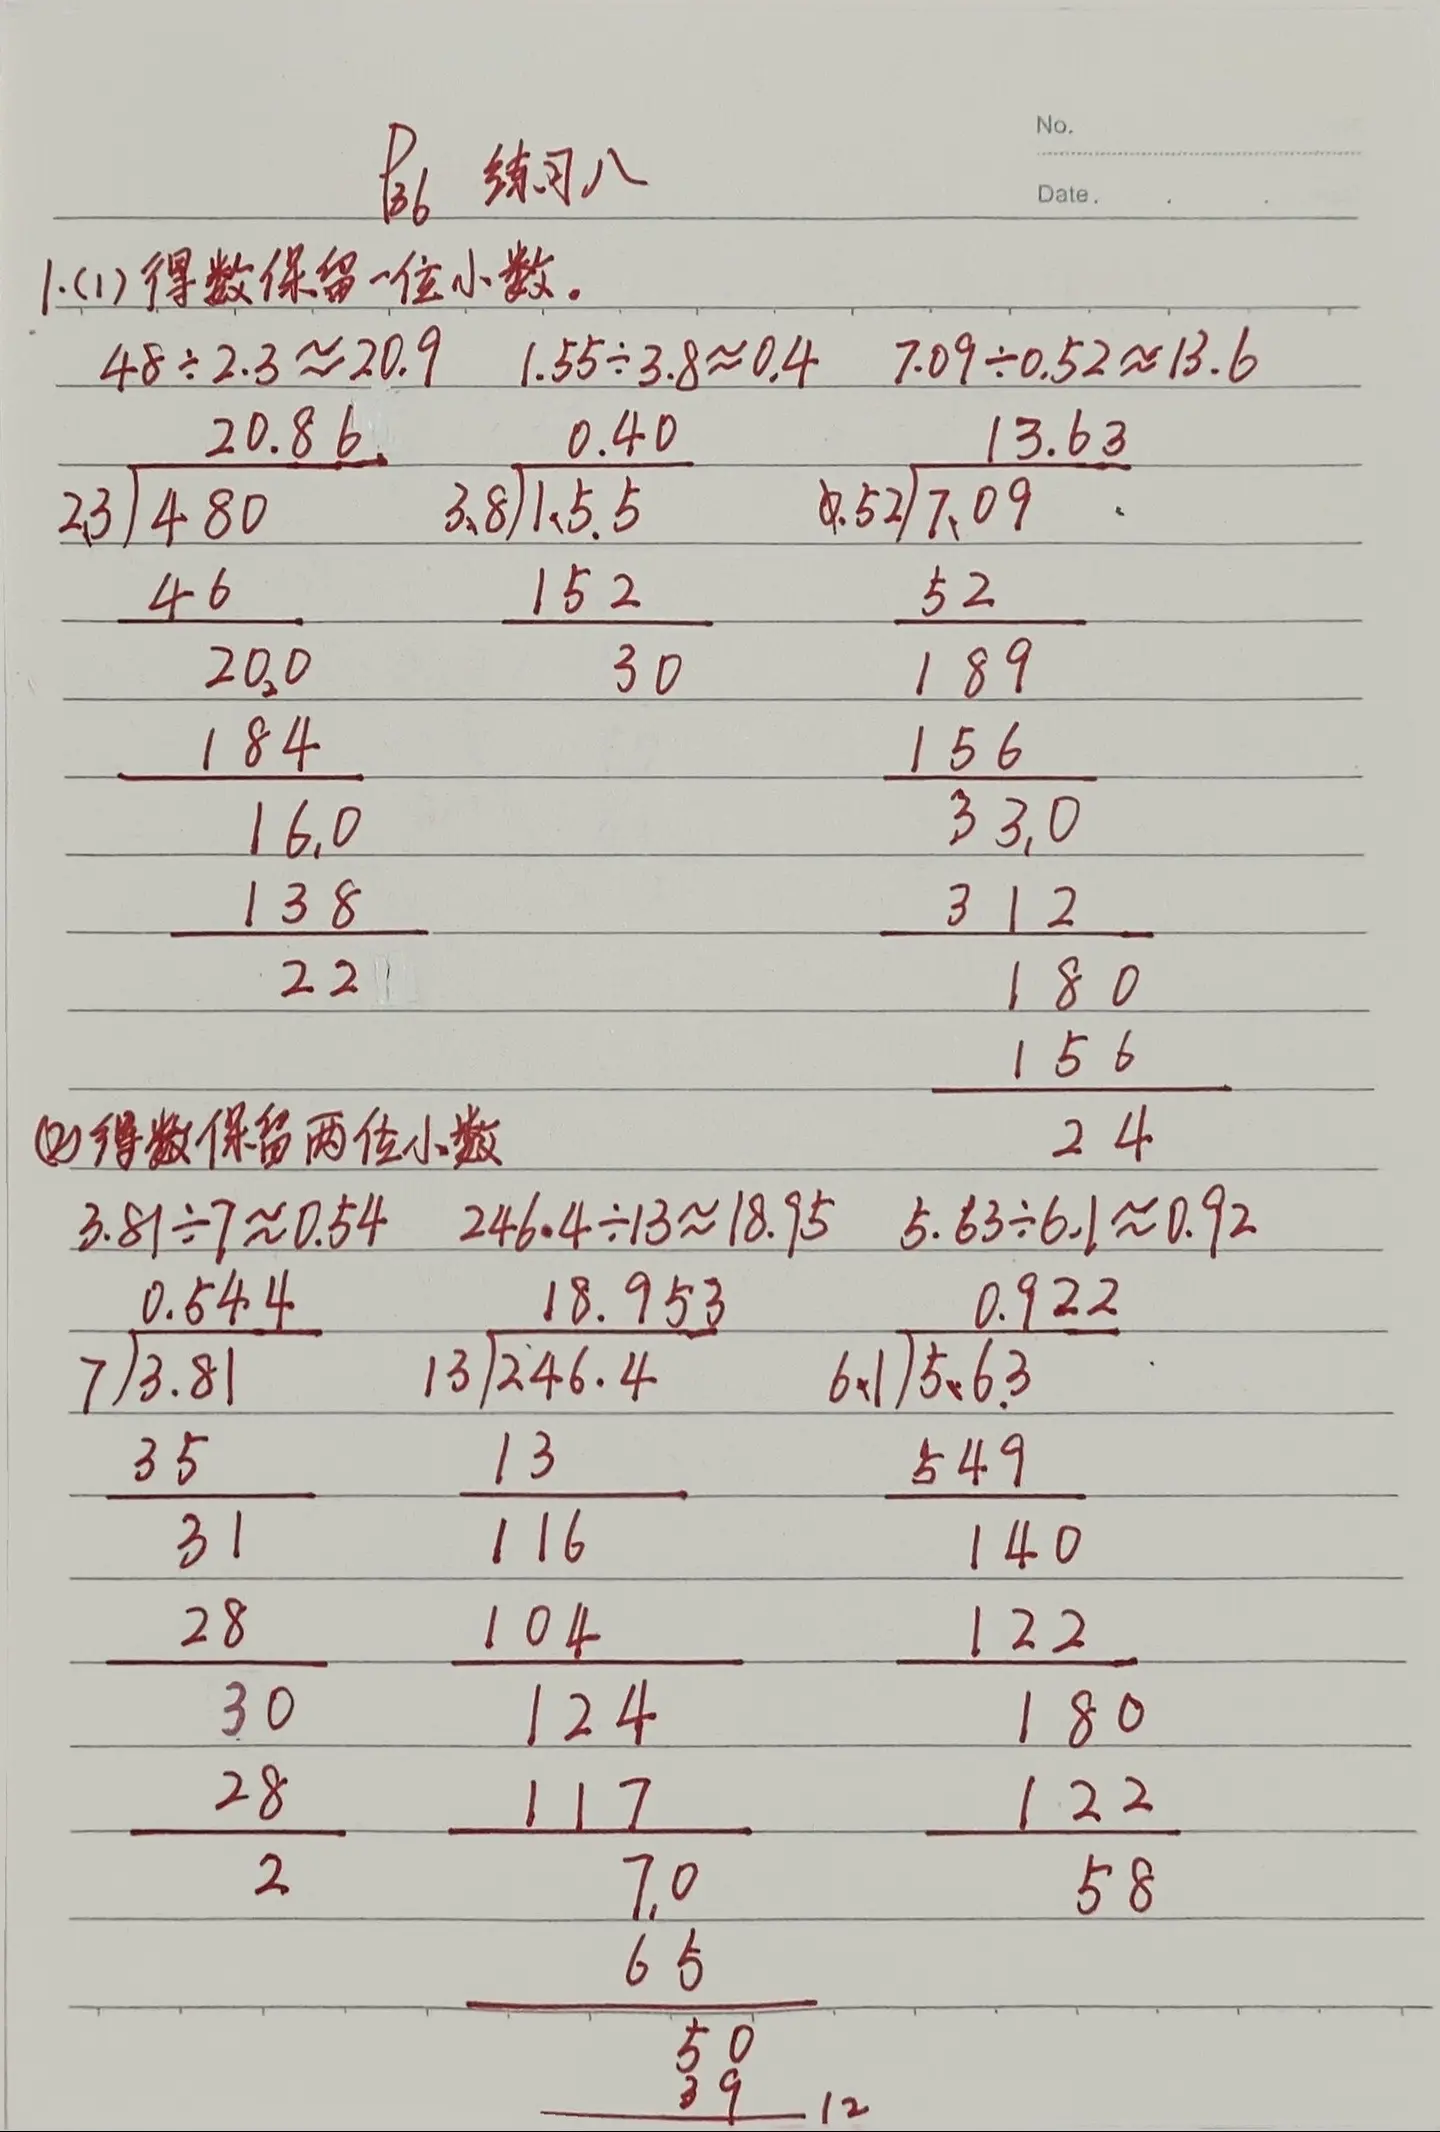 No.
P36 练习八
Date.
1.(1)得数保留一位小数.
48÷2.3≈20.9 1.55÷3.8≈0.4 7.09÷0.52≈13.6
20.86 0.40 13.63
2.3)480 3.8)1.5.5 0.52)7.09
46 152 52
20.0 30 189
184 156
16.0 33.0
138 312
22 180
156
(2)得数保留两位小数 24
3.81÷7≈0.54 246.4÷13≈18.95 5.63÷6.1≈0.92
0.544 18.953 0.922
7)3.81 13)246.4 6.1)5.6.3
35 13 549
31 116 140
28 104 122
30 124 180
28 117 122
2 7.0 58
65
50
39
12